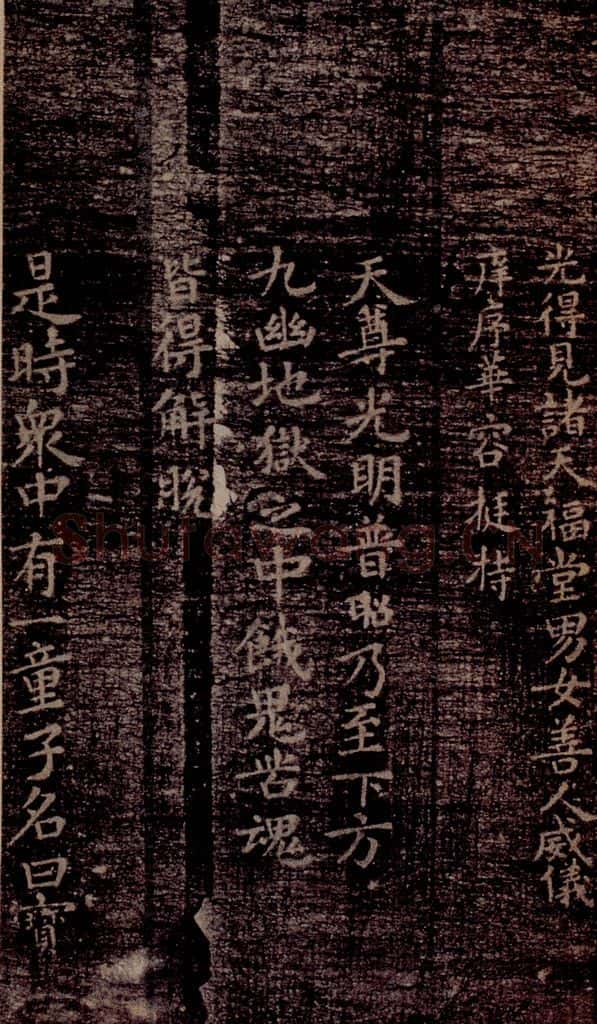 光得見諸天福堂男女善人威儀
庠序華容挺特
天尊光明普昭乃至下方
九幽地獄之中餓鬼苦魂
皆得解脫
是時衆中有一童子名曰寶